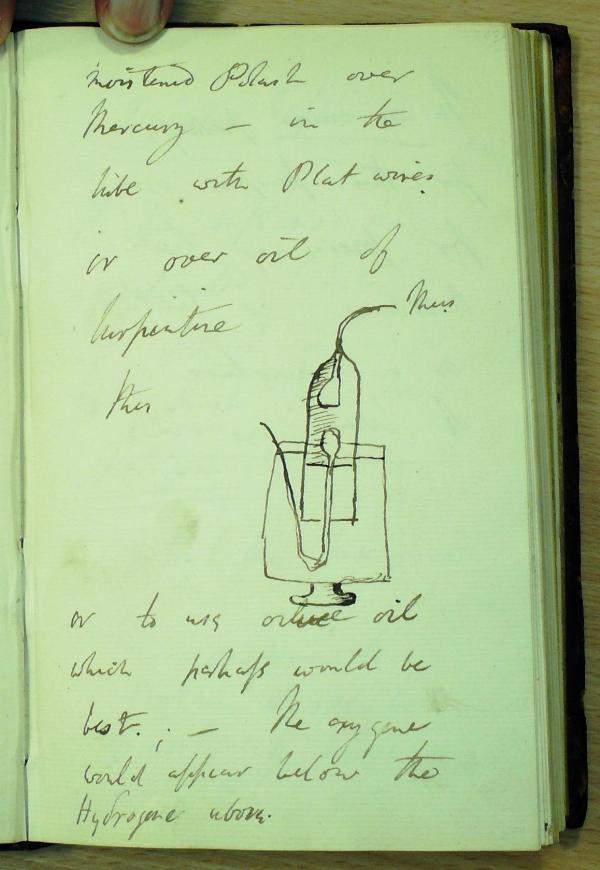 moistened Potash over
Mercury — in the
tube with Plat wires
or over oil of
turpentine
thus
thus
or to use olive oil
which perhaps would be
best. ; — The oxygene
would appear below the
Hydrogene above.